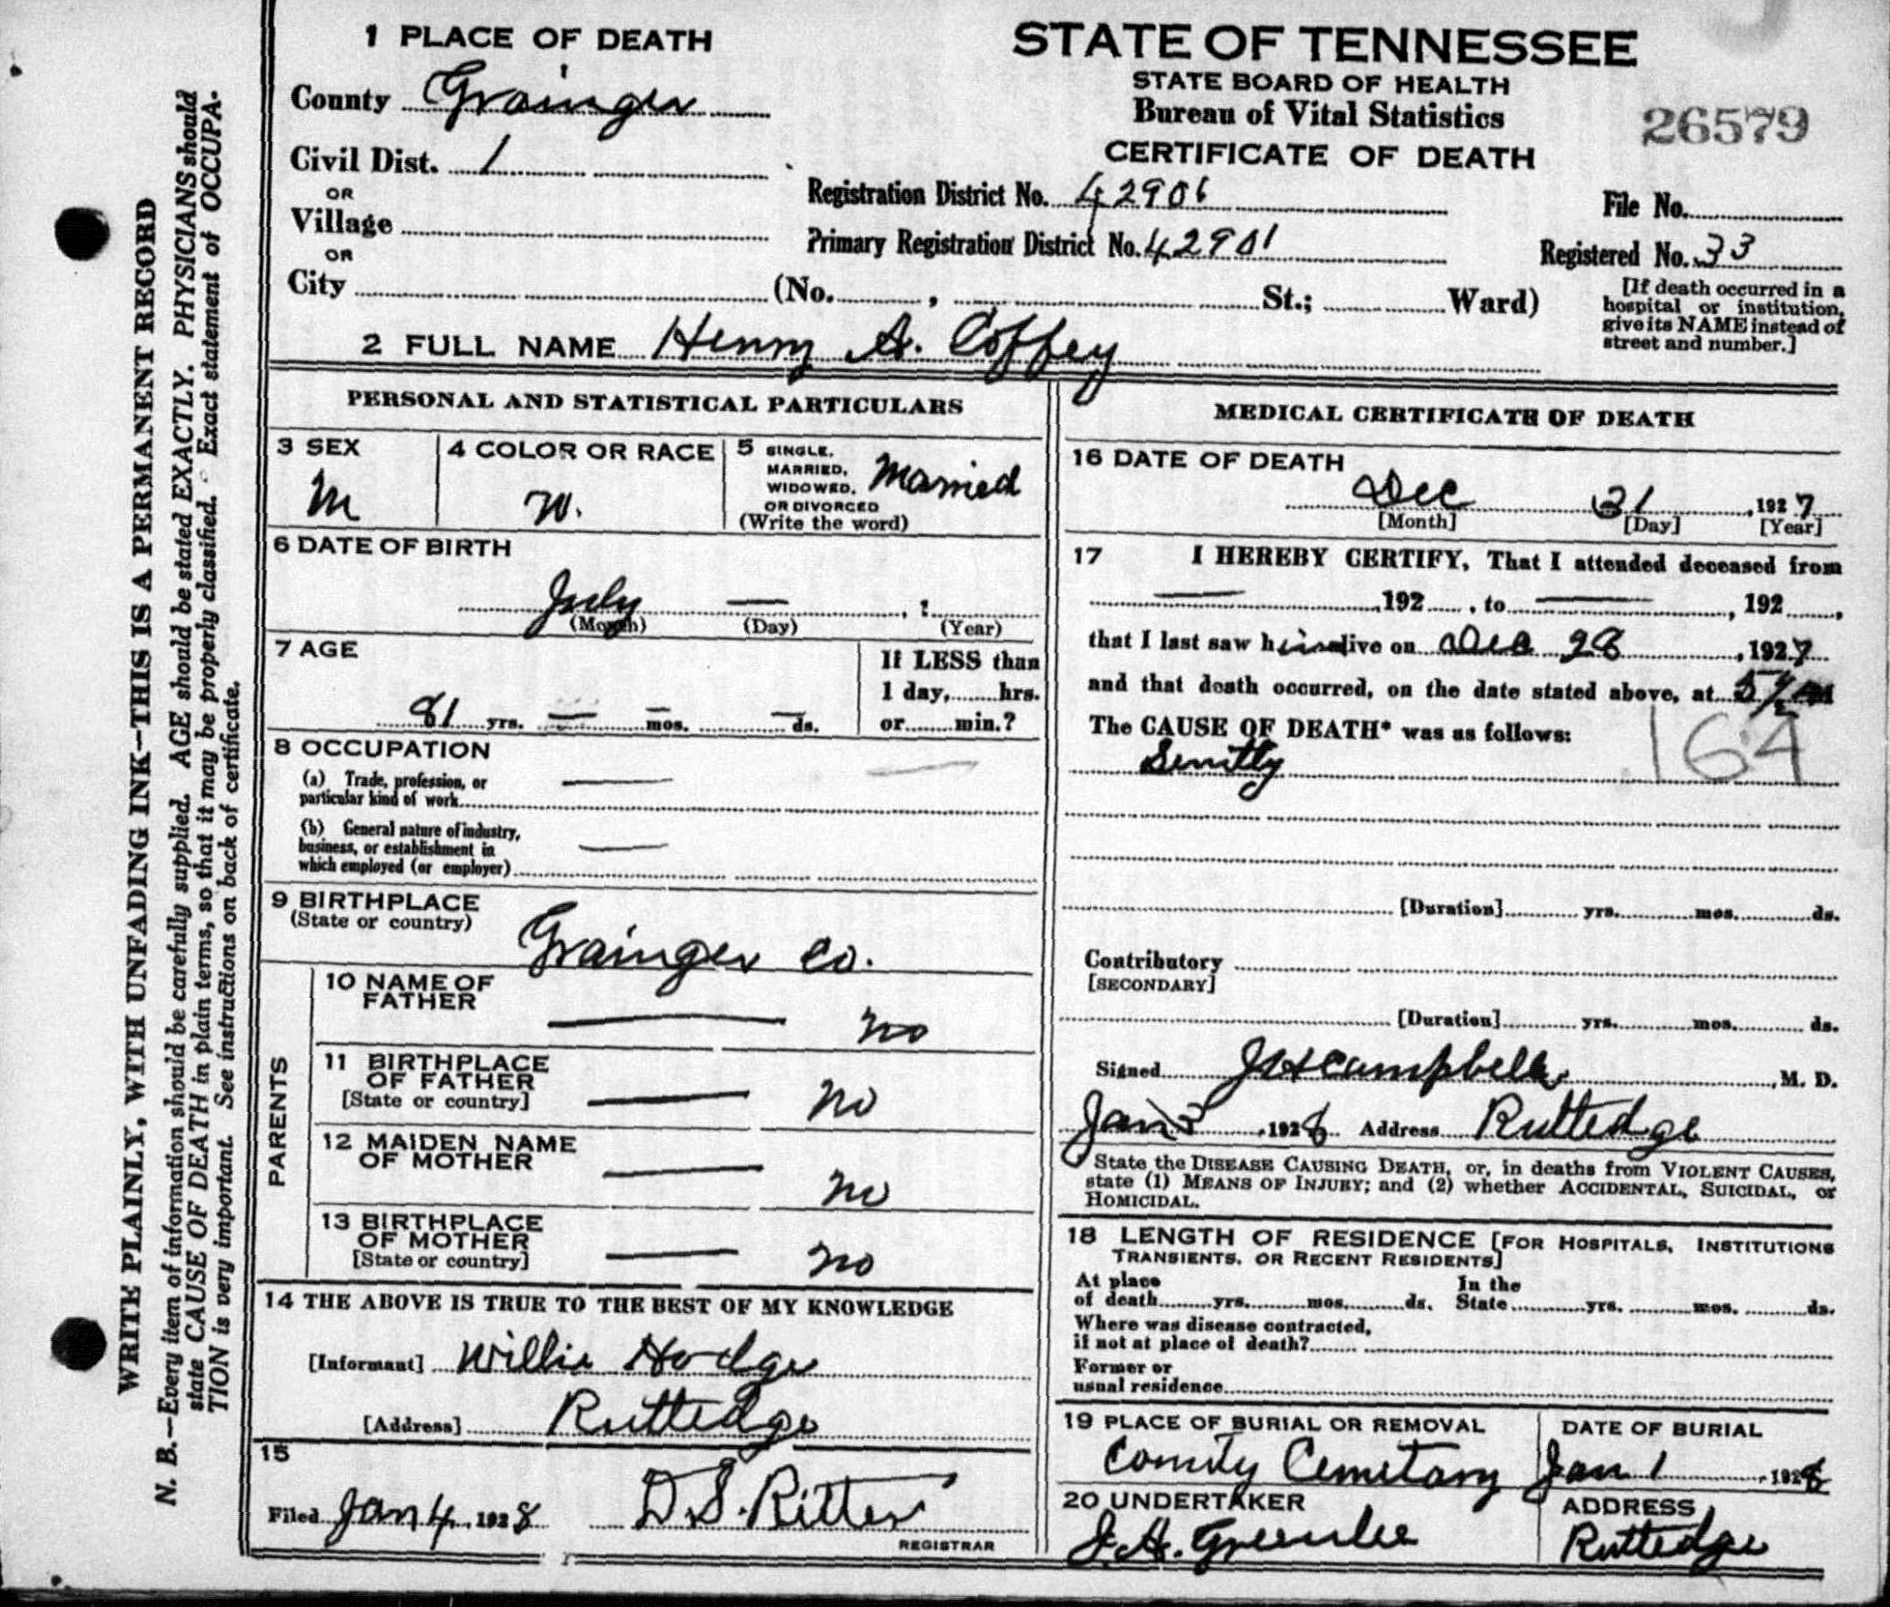 1 PLACE OF DEATH
County Grainger
Civil Dist. 1
OR
Village
OR
City (No. , St.; Ward)
STATE OF TENNESSEE
STATE BOARD OF HEALTH
Bureau of Vital Statistics
CERTIFICATE OF DEATH
26579
Registration District No. 42901
Primary Registration District No. 42901
File No.
Registered No. 33
[If death occurred in a
hospital or institution,
give its NAME instead of
street and number.]
2 FULL NAME Henry A. Coffey
PERSONAL AND STATISTICAL PARTICULARS
3 SEX
M
4 COLOR OR RACE
W.
5 SINGLE,
MARRIED,
WIDOWED,
OR DIVORCED
(Write the word)
Married
6 DATE OF BIRTH
July — , ?
(Month) (Day) (Year)
7 AGE
81 yrs. — mos. — ds.
If LESS than
1 day, hrs.
or min.?
8 OCCUPATION
(a) Trade, profession, or
particular kind of work —
(b) General nature of industry,
business, or establishment in
which employed (or employer) —
9 BIRTHPLACE
(State or country)
Grainger Co.
PARENTS
10 NAME OF
FATHER
— no
11 BIRTHPLACE
OF FATHER
[State or country]
— no
12 MAIDEN NAME
OF MOTHER
— no
13 BIRTHPLACE
OF MOTHER
[State or country]
— no
14 THE ABOVE IS TRUE TO THE BEST OF MY KNOWLEDGE
[Informant] Willie Hodge
[Address] Rutledge
15
Filed Jan 4, 1928 D. S. Ritter
REGISTRAR
MEDICAL CERTIFICATE OF DEATH
16 DATE OF DEATH
Dec 31, 1927
[Month] [Day] [Year]
17 I HEREBY CERTIFY, That I attended deceased from
— , 192 , to — , 192 ,
that I last saw him alive on Dec 28, 1927
and that death occurred, on the date stated above, at 5 1/2
The CAUSE OF DEATH* was as follows:
Senilty
164
[Duration] yrs. mos. ds.
Contributory
[SECONDARY]
[Duration] yrs. mos. ds.
Signed J H Campbell, M. D.
Jan 3, 1928 Address Rutledge
State the DISEASE CAUSING DEATH, or, in deaths from VIOLENT CAUSES,
state (1) MEANS OF INJURY; and (2) whether ACCIDENTAL, SUICIDAL, or
HOMICIDAL.
18 LENGTH OF RESIDENCE [FOR HOSPITALS, INSTITUTIONS
TRANSIENTS, OR RECENT RESIDENTS]
At place In the
of death yrs. mos. ds. State yrs. mos. ds.
Where was disease contracted,
if not at place of death?
Former or
usual residence
19 PLACE OF BURIAL OR REMOVAL
County Cemetary
DATE OF BURIAL
Jan 1, 1928
20 UNDERTAKER
J. A. Greenlee
ADDRESS
Rutledge
WRITE PLAINLY, WITH UNFADING INK—THIS IS A PERMANENT RECORD
N. B.—Every item of information should be carefully supplied. AGE should be stated EXACTLY. PHYSICIANS should
state CAUSE OF DEATH in plain terms, so that it may be properly classified. Exact statement of OCCUPA-
TION is very important. See instructions on back of certificate.